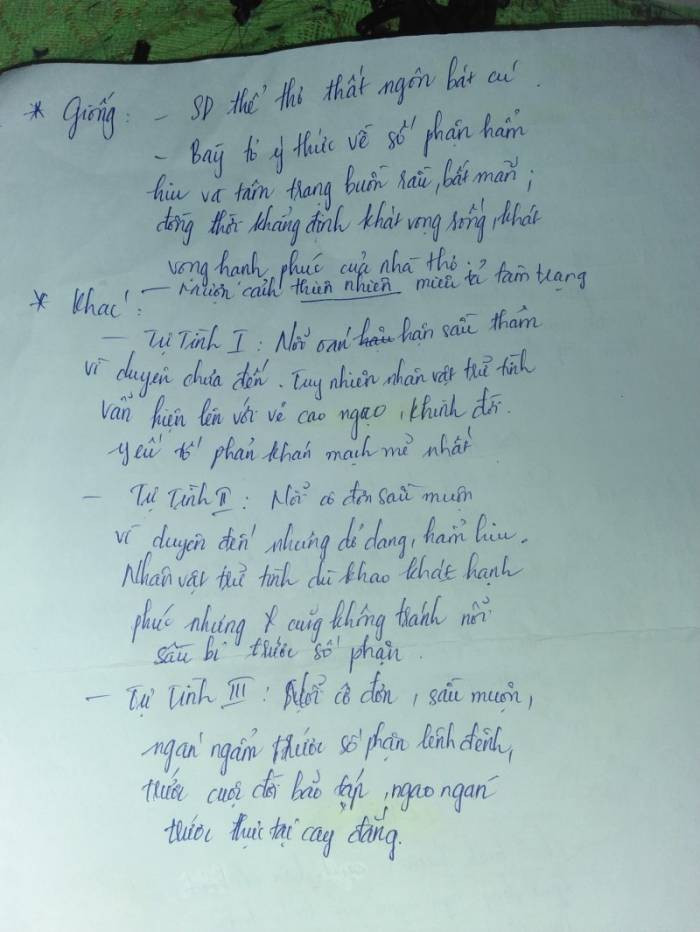 * Giống: - SD thể thơ thất ngôn bát cú.
- Bày tỏ ý thức về số phận hẩm
hiu và tâm trạng buồn sầu, bất mãn;
đồng thời khẳng định khát vọng sống, khát
vọng hạnh phúc của nhà thơ.
- Mượn cảnh thiên nhiên miêu tả tâm trạng
* Khác:
- Tự Tình I: Nỗi oán hận sầu thẩm
vì duyên chưa đến. Tuy nhiên nhân vật trữ tình
vẫn hiện lên với vẻ cao ngạo, khinh đời.
yếu tố phản kháng mạch mẻ nhất
- Tự Tình II: Nỗi cô đơn sầu muộn
vì duyên đến nhưng dở dang, hẩm hiu.
Nhân vật trữ tình dù khao khát hạnh
phúc nhưng cũng không tránh nổi
sầu bi trước số phận.
- Tự Tình III: Nỗi cô đơn, sầu muộn,
ngán ngẩm trước số phận lênh đênh,
trước cuộc đời bảo táp, ngao ngán
trước thực tại cay đắng.